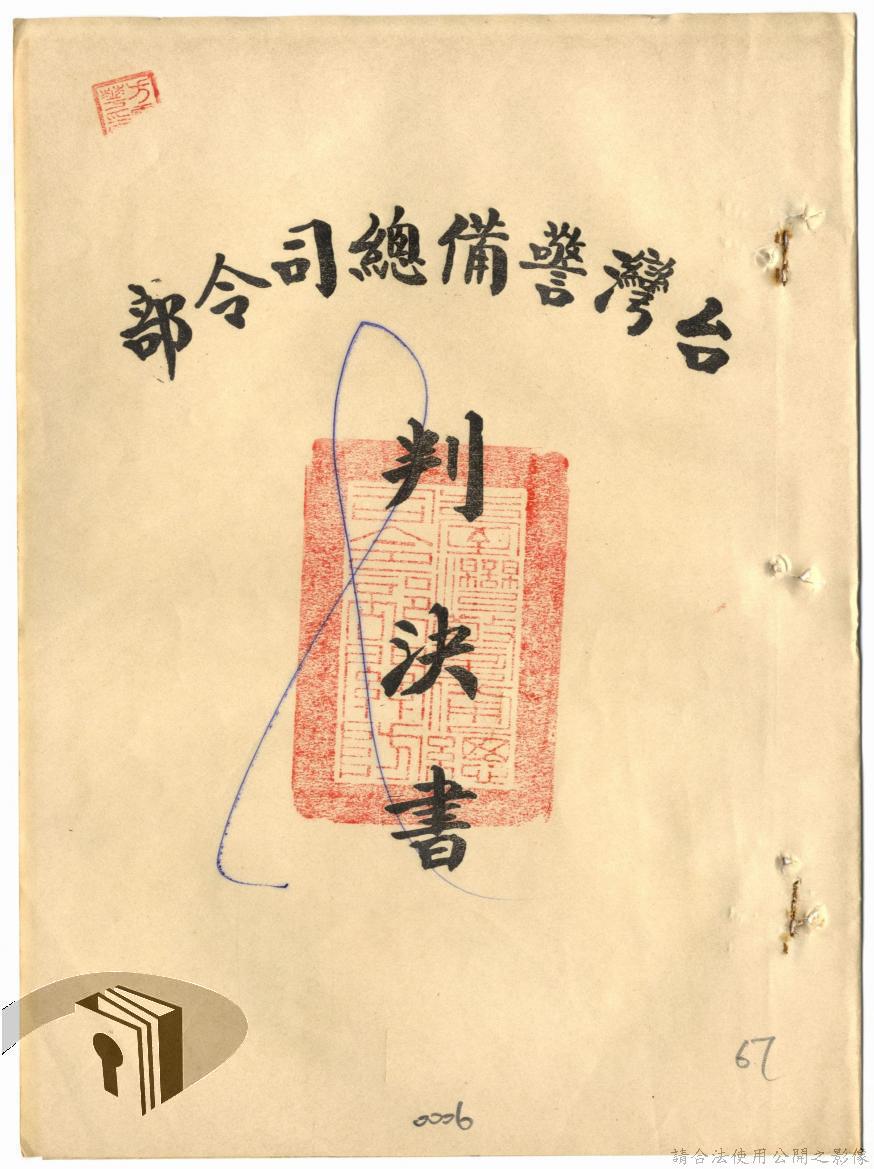 台灣警備總司令部
判決書
67
0006
請合法使用公開之影像